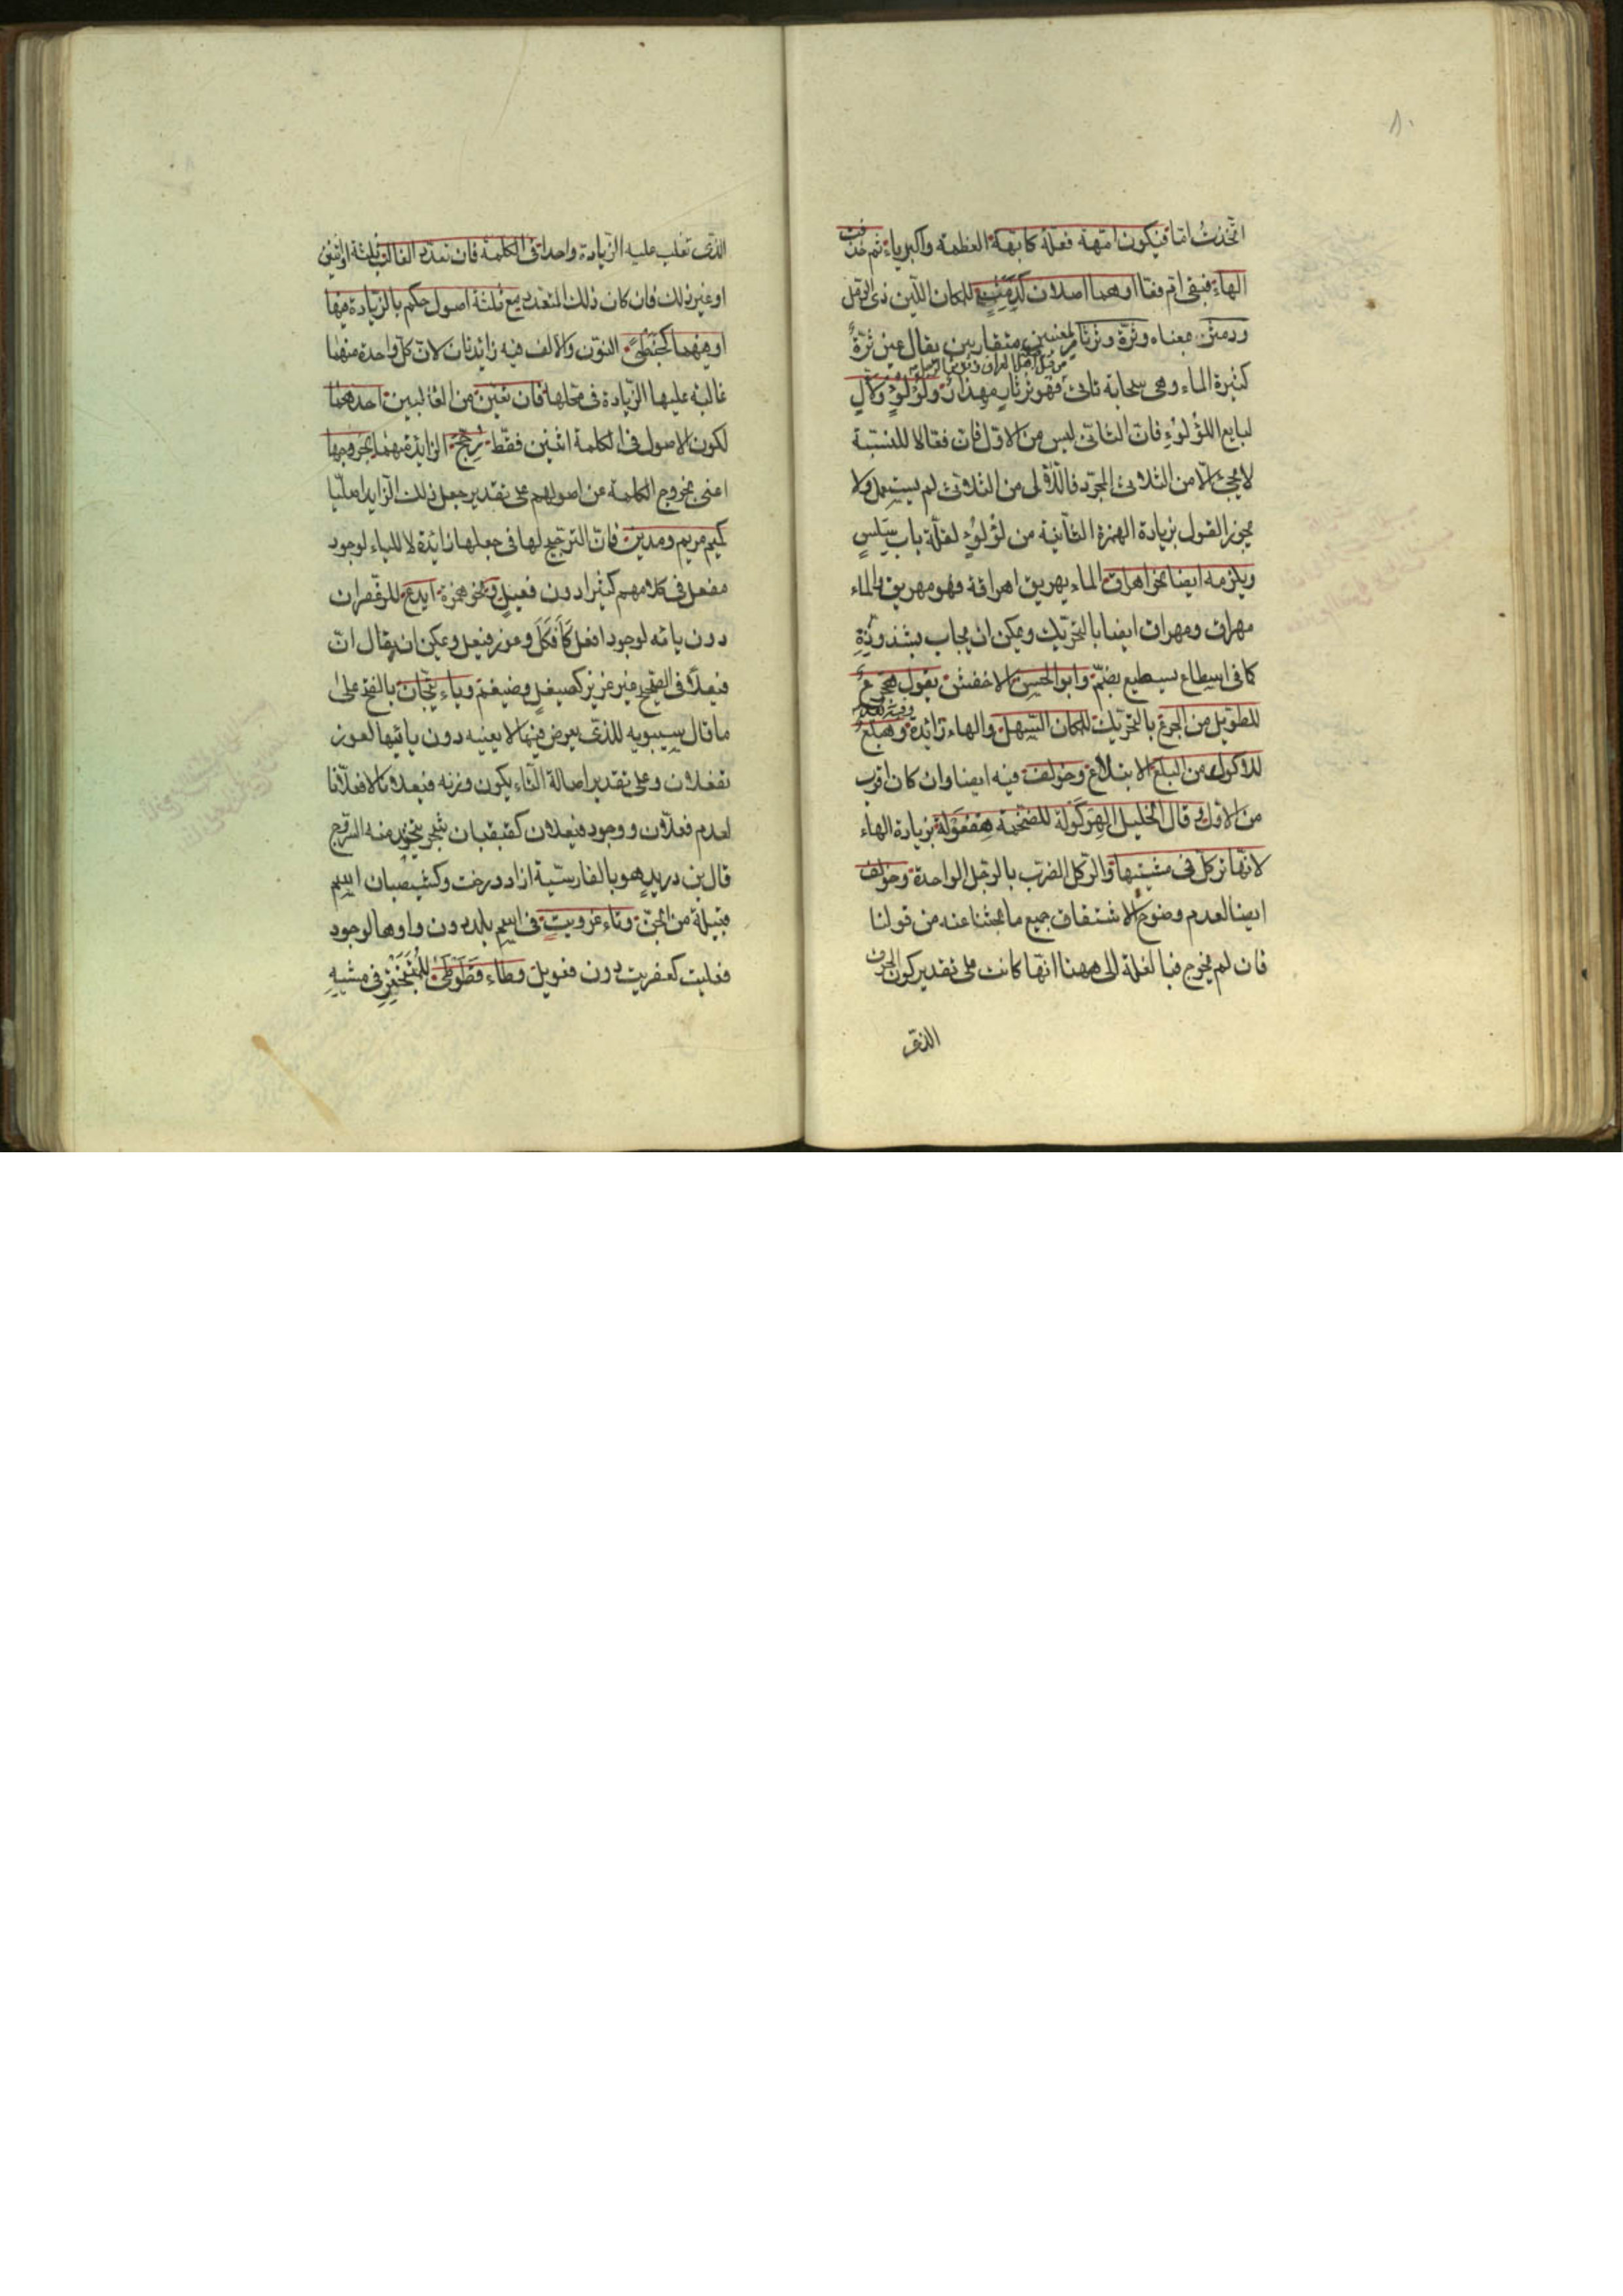 ٨٠
اتخذت اما فيكون امهة فعلة كابهة العظمة والكبرياء ثم حذفت
الهاء فبقى ام فقا او هما اصلان كدمث للمكان اللين ذى الرمل
ودمثر بمعناه وثرة وثرثار لمعنيين متقاربين يقال عين ثرة
كثيرة الماء وهى سحابة تاتى فهو ثرثار مهذار ولؤلؤ ولآل
لبايع اللؤلؤ فان الثانى ليس من الاول فان فعالا للنسبة
لا يجئ الا من الثلاثى المجرد فاللآلى من الثلاثى لم يستعمل ولا
يجوز القول بزيادة الهمزة الثانية من لؤلؤ لقلة باب سلس
ويلزمه ايضا نحو اهراق الماء يهريق اهراقة فهو مهريق والماء
مهراق ومهراق ايضا بالتحريك ويمكن ان يجاب بشذوذه
كما فى اسطاع يسطيع بضم وابو الحسن الاخفش يقول هجرع
للطويل من الجرع بالتحريك للمكان السهل والهاء زائدة وهبلع
للاكول من البلع الابتلاع وخولف فيه ايضا وان كان اقرب
من الاول وقال الخليل الهركولة للضخمة هفعولة بزيادة الهاء
لانها تركل فى مشيتها والركل الضرب بالرجل الواحدة وخولف
ايضا لعدم وضوح الاشتقاق جميع ما بحثنا عنه من قولنا
فان لم يخرج فبالغلبة الى ههنا انما كانت على تقدير كون الحرف
الذى
الذى تغلب عليه الزيادة واحدا فى الكلمة فان تعدد الغالب ثلثة او اثنين
او غير ذلك فان كان ذلك المتعدد مع ثلثة اصول حكم بالزيادة فيها
او فيهما كحبنطى النون والالف فيه زايدتان لان كل واحدة منهما
غالبة عليها الزيادة فى محلها فان تعين من الغالبين احدهما
لكون الاصول فى الكلمة اثنين فقط رجح الزايدة منهما بخروجها
اعنى بخروج الكلمة عن اصولهم على تقدير جعل ذلك الزايد اصليا
كميم مريم ومدين فان الترجيح لها فى جعلها زائدة لا للياء لوجود
مفعل فى كلامهم كثيرا دون فعيل ونحو همزة ايدع للزعفران
دون يائه لوجود افعل كافكل وعوز فيعل ويمكن ان يقال ان
فيعلا فى الصحيح غير عزيز كصيقل وضيغم وياء تيحان بالفتح على
ما قال سيبويه للذى يعرض فيما لا يعنيه دون تائها لعوز
تفعلان وعلى تقدير اصالة التاء يكون وزنه فيعلانا لا فعلانا
لعدم فعلان ووجود فيعلان كقيقبان شجر يتخذ منه السرج
قال بن دريد هو بالفارسية ازاد درخت وكشيصبان اسم
قبيلة من الجن وتاء عزويت فى اسم بلد دون واوها لوجود
فعليت كعفريت دون فعويل وطاء قطوطى للمتبختر فى مشيه